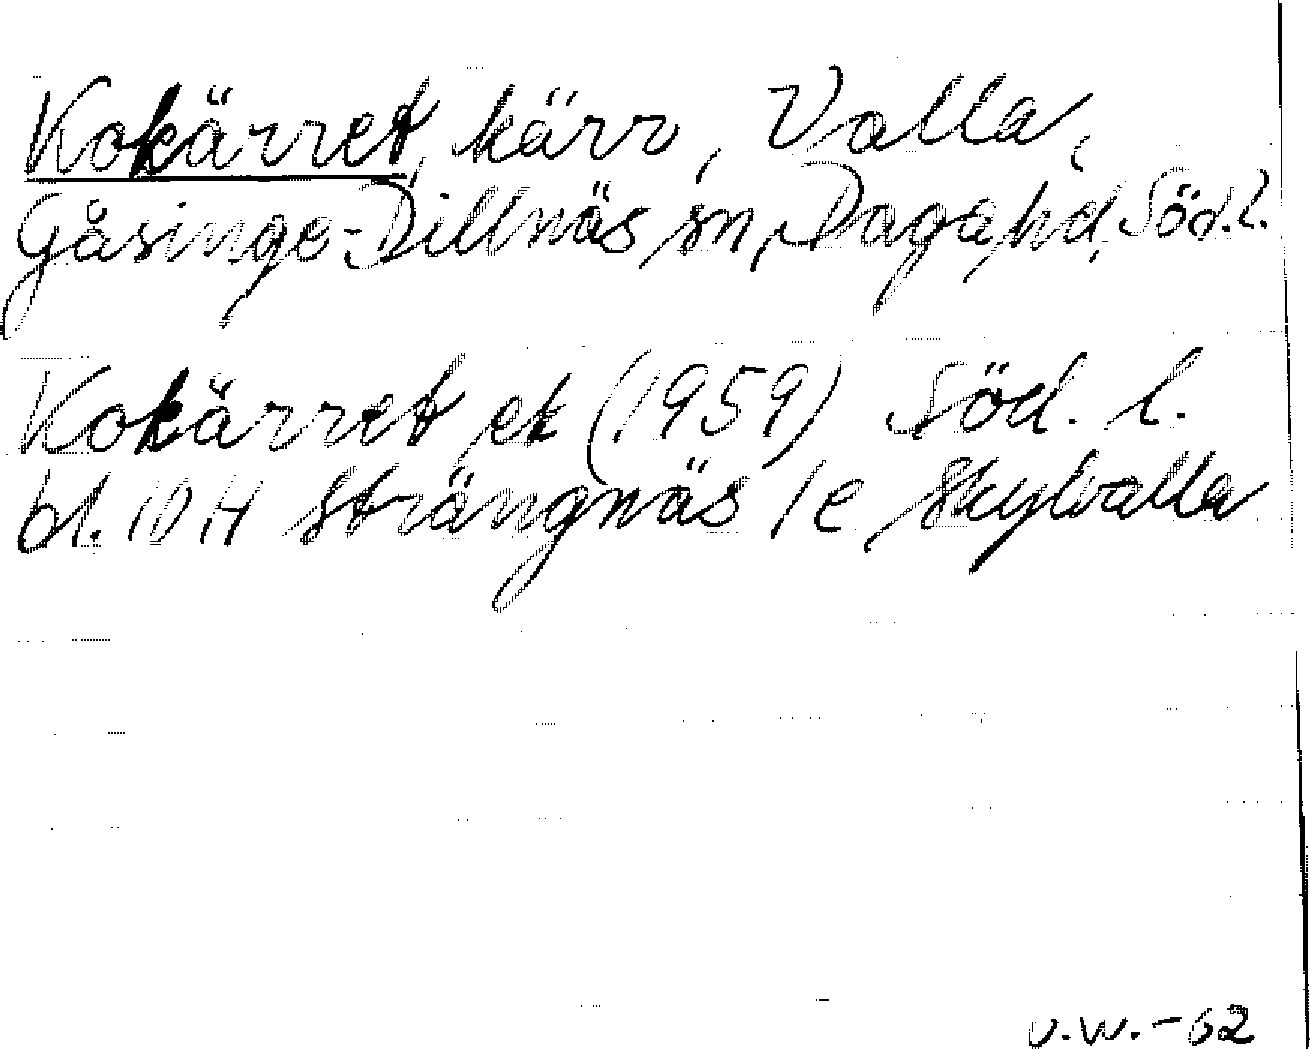 Kokärret, kärr, Valla,
Gåsinge-Dillnäs sn, Daga hd, Söd.l.
Kokärret ek (1959) Söd. l.
bl. 10 H Strängnäs /e Skylvalla
U.W.-62